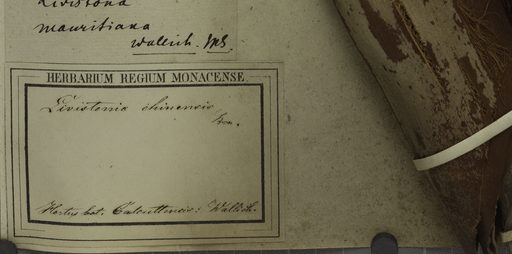 Livistona
mauritiana
Wallich. MS.
HERBARIUM REGIUM MONACENSE.
Livistonia chinensis
Hortus bot. Calcuttensis: Wallich.